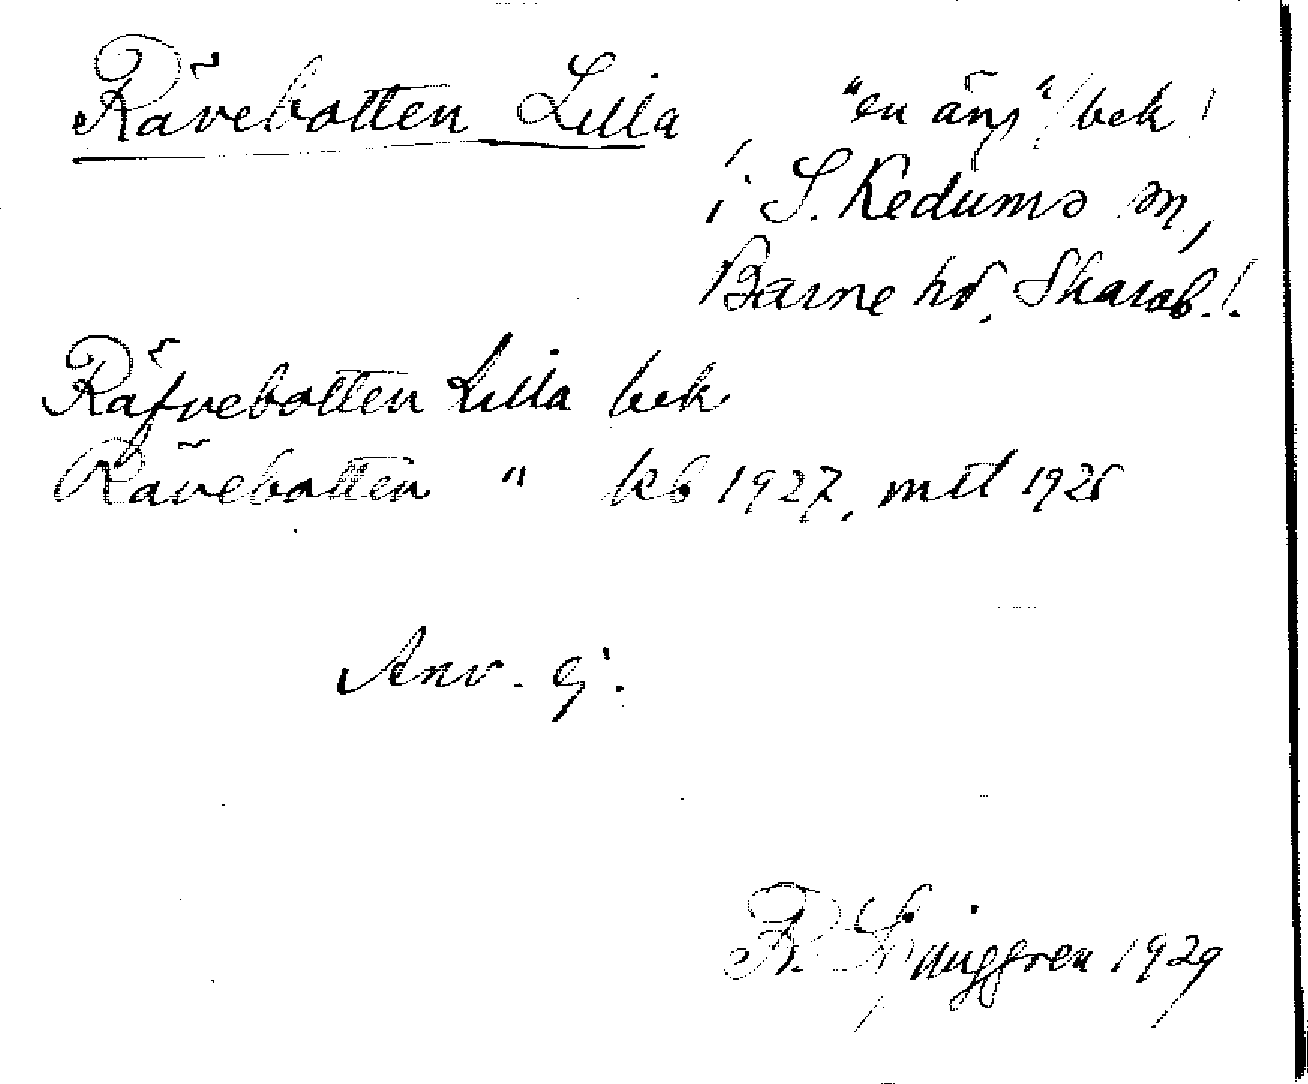 Rävebotten Lilla "en äng" / bek !
i S. Kedums sn,
Barne hd. Skarab. !.
Räfvebotten Lilla bek
Rävebotten " kb 1927, mtl 1925
Anv. ej.
Fr. Ljunggren 1929